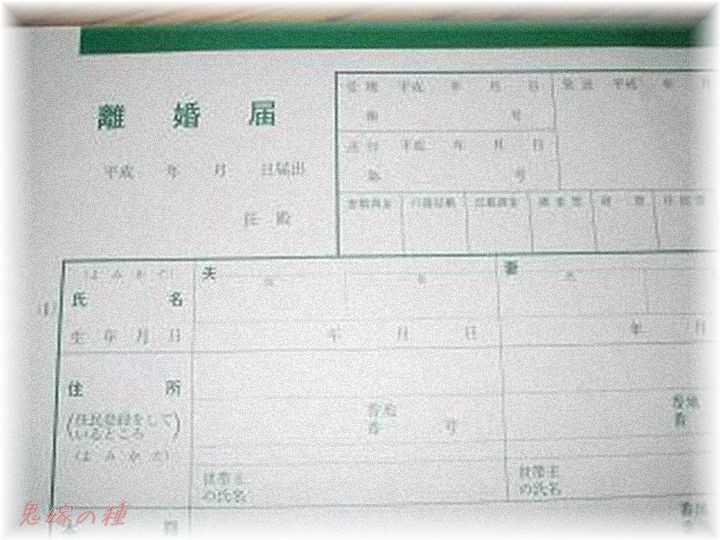 離婚届
平成 年 月 日届出
長 殿
受理 平成 年 月 日
第 号
発送 平成 年 月
送付 平成 年 月 日
第 号
書類調査 戸籍記載 記載調査 調査票 附票 住民票
(よみかた)
夫 氏 名
妻 氏
(1)
氏 名
生年月日
年 月 日
年 月
住 所
(住民登録をしているところ)
(よみかた)
番地
番 号
番地
番
世帯主
の氏名
世帯主
の氏名
本 籍
番地
鬼嫁の種